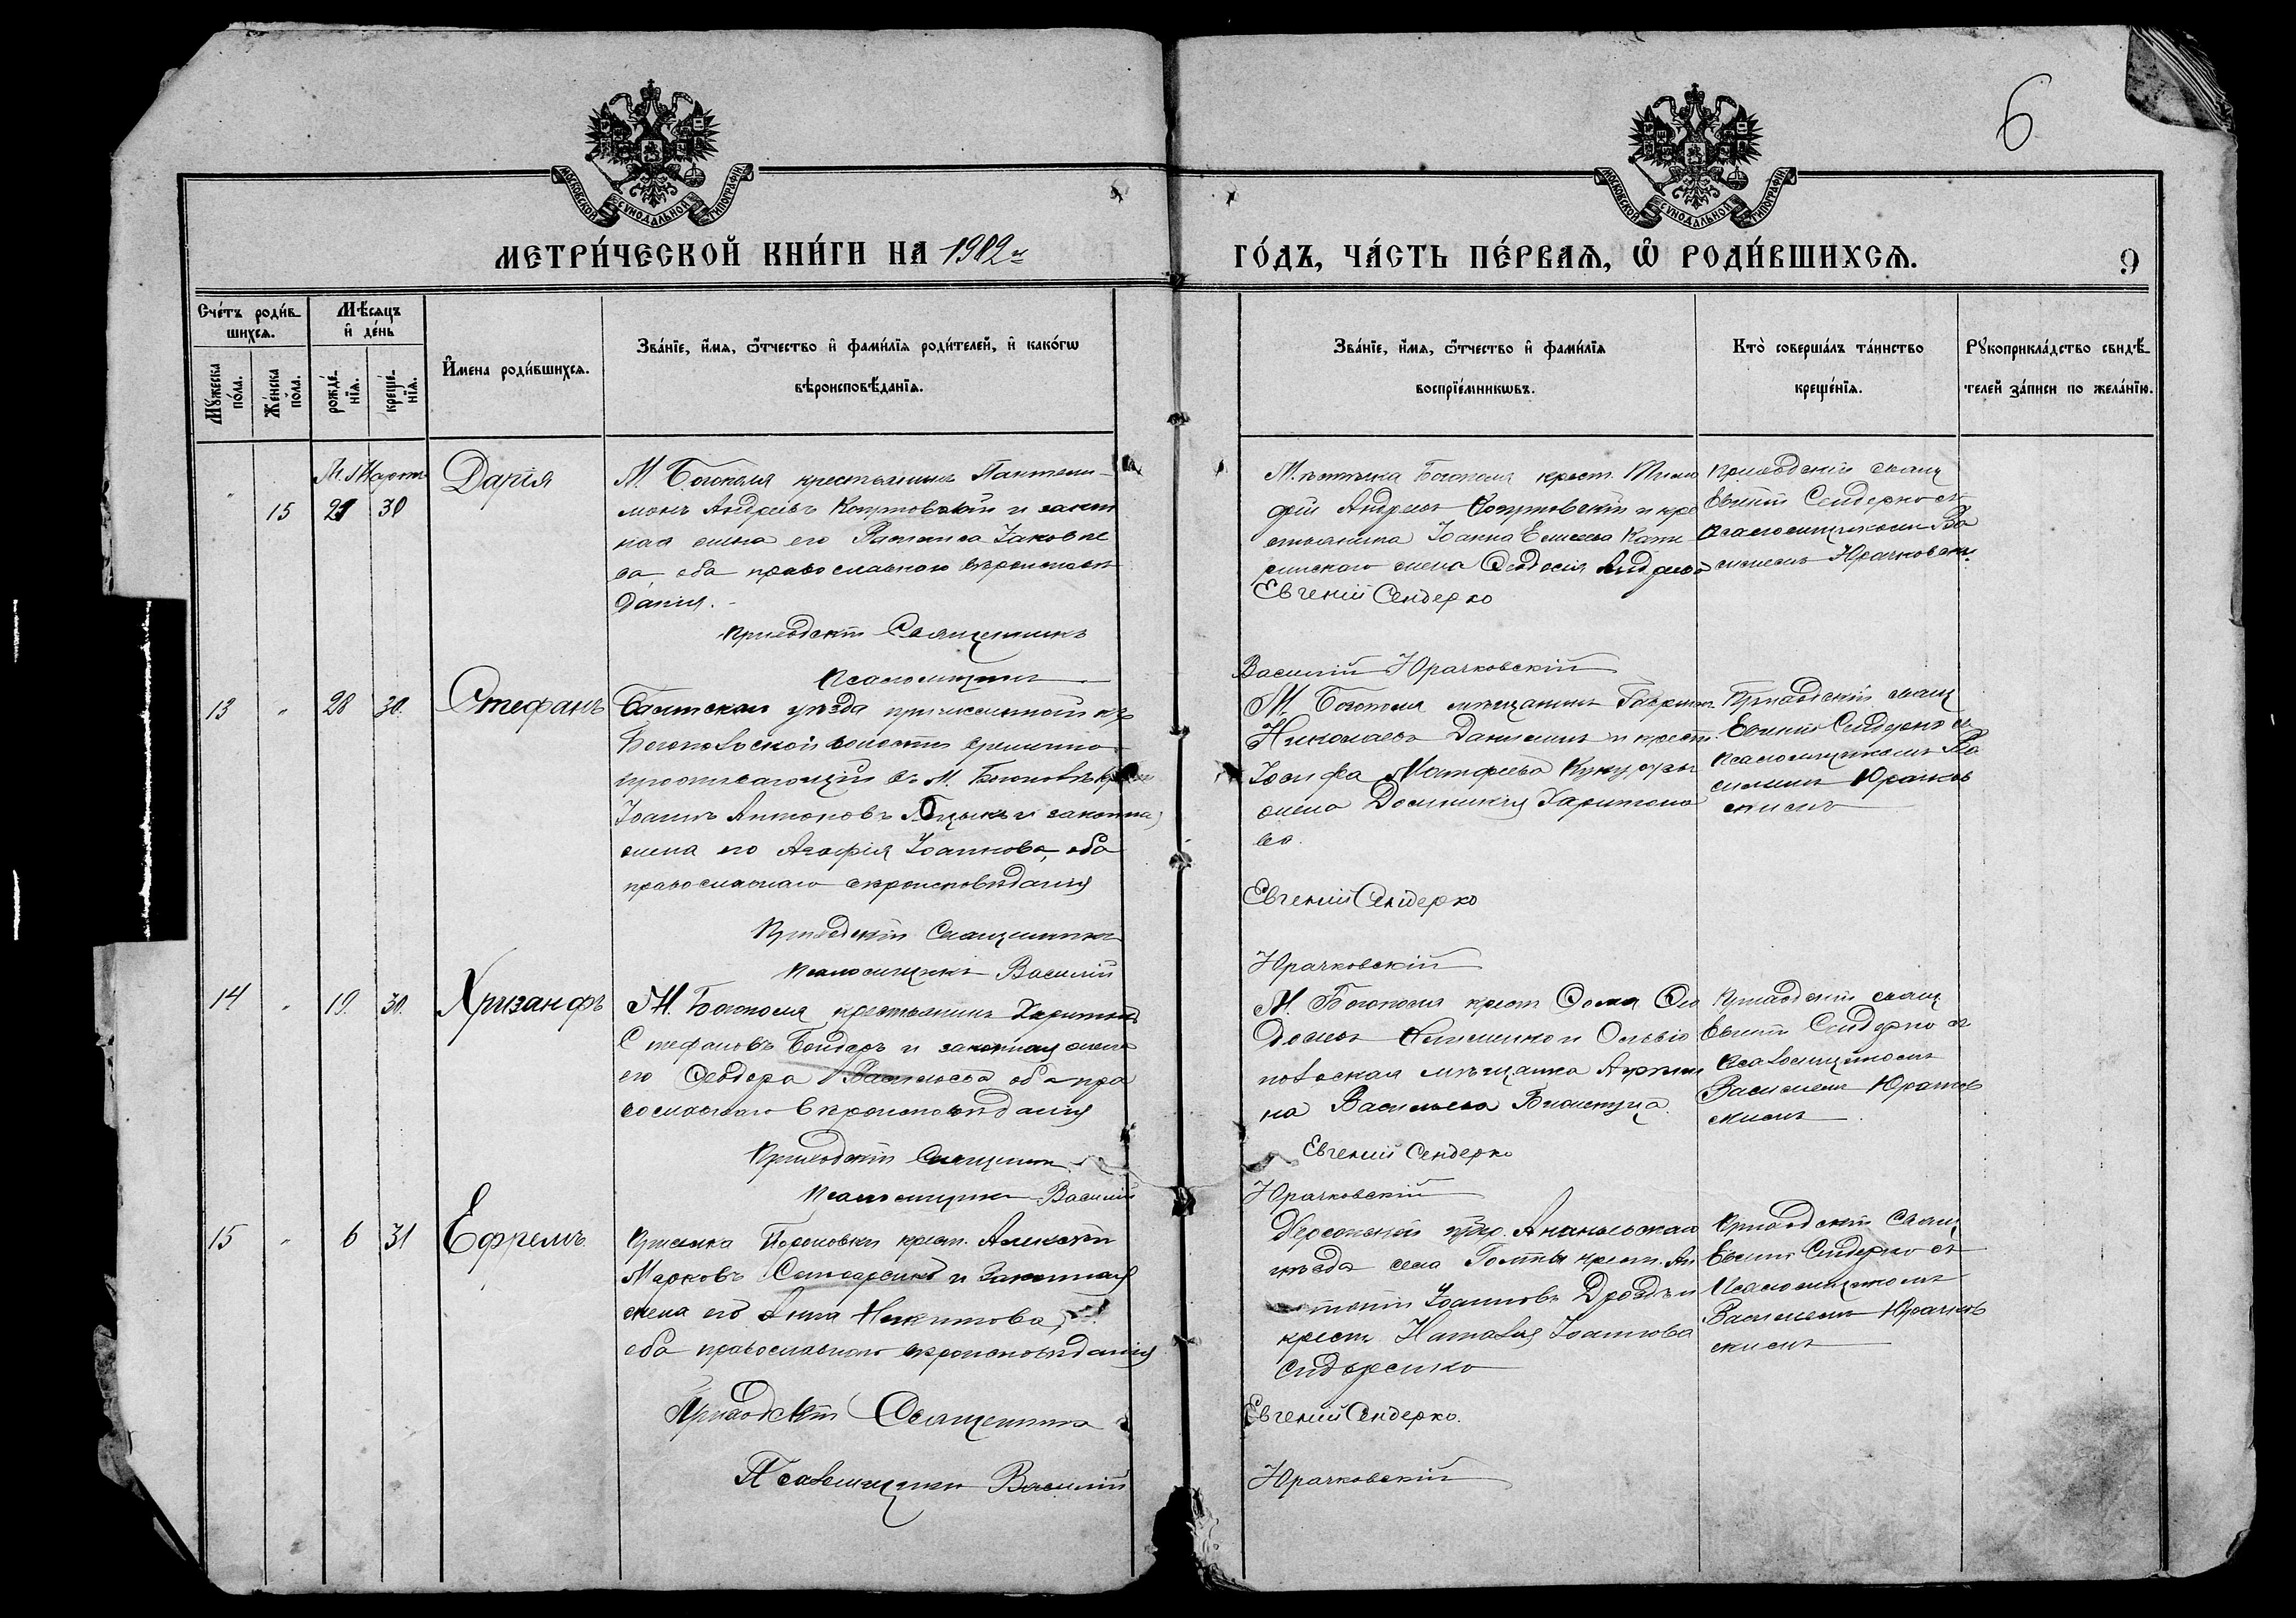 6
МОСКОВСКОЙ СУНОДАЛЬНОЙ ТИПОГРАФІИ
МОСКОВСКОЙ СУНОДАЛЬНОЙ ТИПОГРАФІИ
МЕТРИ́ЧЕСКОЙ КНИ́ГИ НА 1912
ГО́ДЪ, ЧА́СТЬ ПЕ́РВАѦ, Ѽ РОДИ́ВШИХСѦ.
9
Сче́тъ роди́в-
шихсѧ.
Мꙋ́жеска по́ла.
Же́нска по́ла.
Мѣ́сѧцъ
и҆ де́нь
рожде́-нїѧ.
креще́-нїѧ.
И҆́мена роди́вшихсѧ.
Зва́нїе, и҆́мѧ, ѻ҆́тчество и҆ фами́лїѧ роди́телей, и҆ како́гѡ
вѣроисповѣ́данїѧ.
Зва́нїе, и҆́мѧ, ѻ҆́тчество и҆ фами́лїѧ
воспрїе́мникѡвъ.
Кто̀ соверша́лъ та́инство
креще́нїѧ.
Рꙋкоприкла́дство свидѣ́-
телей за́писи по жела́нїю.
М. Мартъ
" 15 29 30 Дарія
М. Богополя крестьянинъ Пантели-
монъ Андреевъ и закон
ная жена его Яковле
ва, оба православного вѣроисповѣ
данія.
Приходскій Священникъ
Псаломщикъ
Мѣстечка Богополя крест. Тимо
фей Андреевъ и кре
стьянина Іоанна
жена Ѳеодосія Андреева
Евгеній Сендерко
Василій Юрачковскій
Приходскій свящ
Евгеній Сендерко съ
псаломщикомъ Ва
силіемъ Юрачковски
13 " 28 30. Стефанъ
Балтскаго уѣзда къ
Богопольской волости временно
проживающій въ М. Богополѣ
Іоаннъ Антоновъ и законна
жена его Агафія Іоаннова, оба
православнаго вѣроисповѣданія
Приходскій Священникъ
Псаломщикъ Василій
М. Богополя мѣщанинъ Гавріилъ
Николаевъ и крест.
Іосифа Матфеева
жена Домникія Харитоно
ва.
Евгеній Сендерко
Юрачковскій
Приходскій свящ
Евгеній Сендерко съ
псаломщикомъ Ва
силіемъ Юрачков
скимъ
14 " 19. 30. Хрисанфъ
М. Богополя крестьянинъ Харитонъ
Стефановъ Бондарь и законная жена
его Ѳеодора Васильева оба пра
вославнаго вѣроисповѣданія
Приходскій Священник
Псаломщикъ Василій
М. Богополя крест Ѳома Ѳео
доровъ и Ольвіо
польская мѣщанка
на Васильева
Евгеній Сендерко
Юрачковскій
Приходскій свящ
Евгеній Сендерко съ
псаломщикомъ
Василіемъ Юрачков
скимъ
15 " 6 31 Ефремъ
крест. Алексѣй
Марковъ и законная
жена его Анна Никитова,
оба православнаго вѣроисповѣданія
Приходскій Священникъ
Псаломщикъ Василій
Херсонской губер. Ананьевскаго
уѣзда села крест.
Іоанновъ Дроздъ и
крест Наталія Іоаннова
Сидоренко
Евгеній Сендерко.
Юрачковскій
Приходскій Свящ
Евгеній Сендерко съ
Псаломщикомъ
Василіемъ Юрачков
скимъ